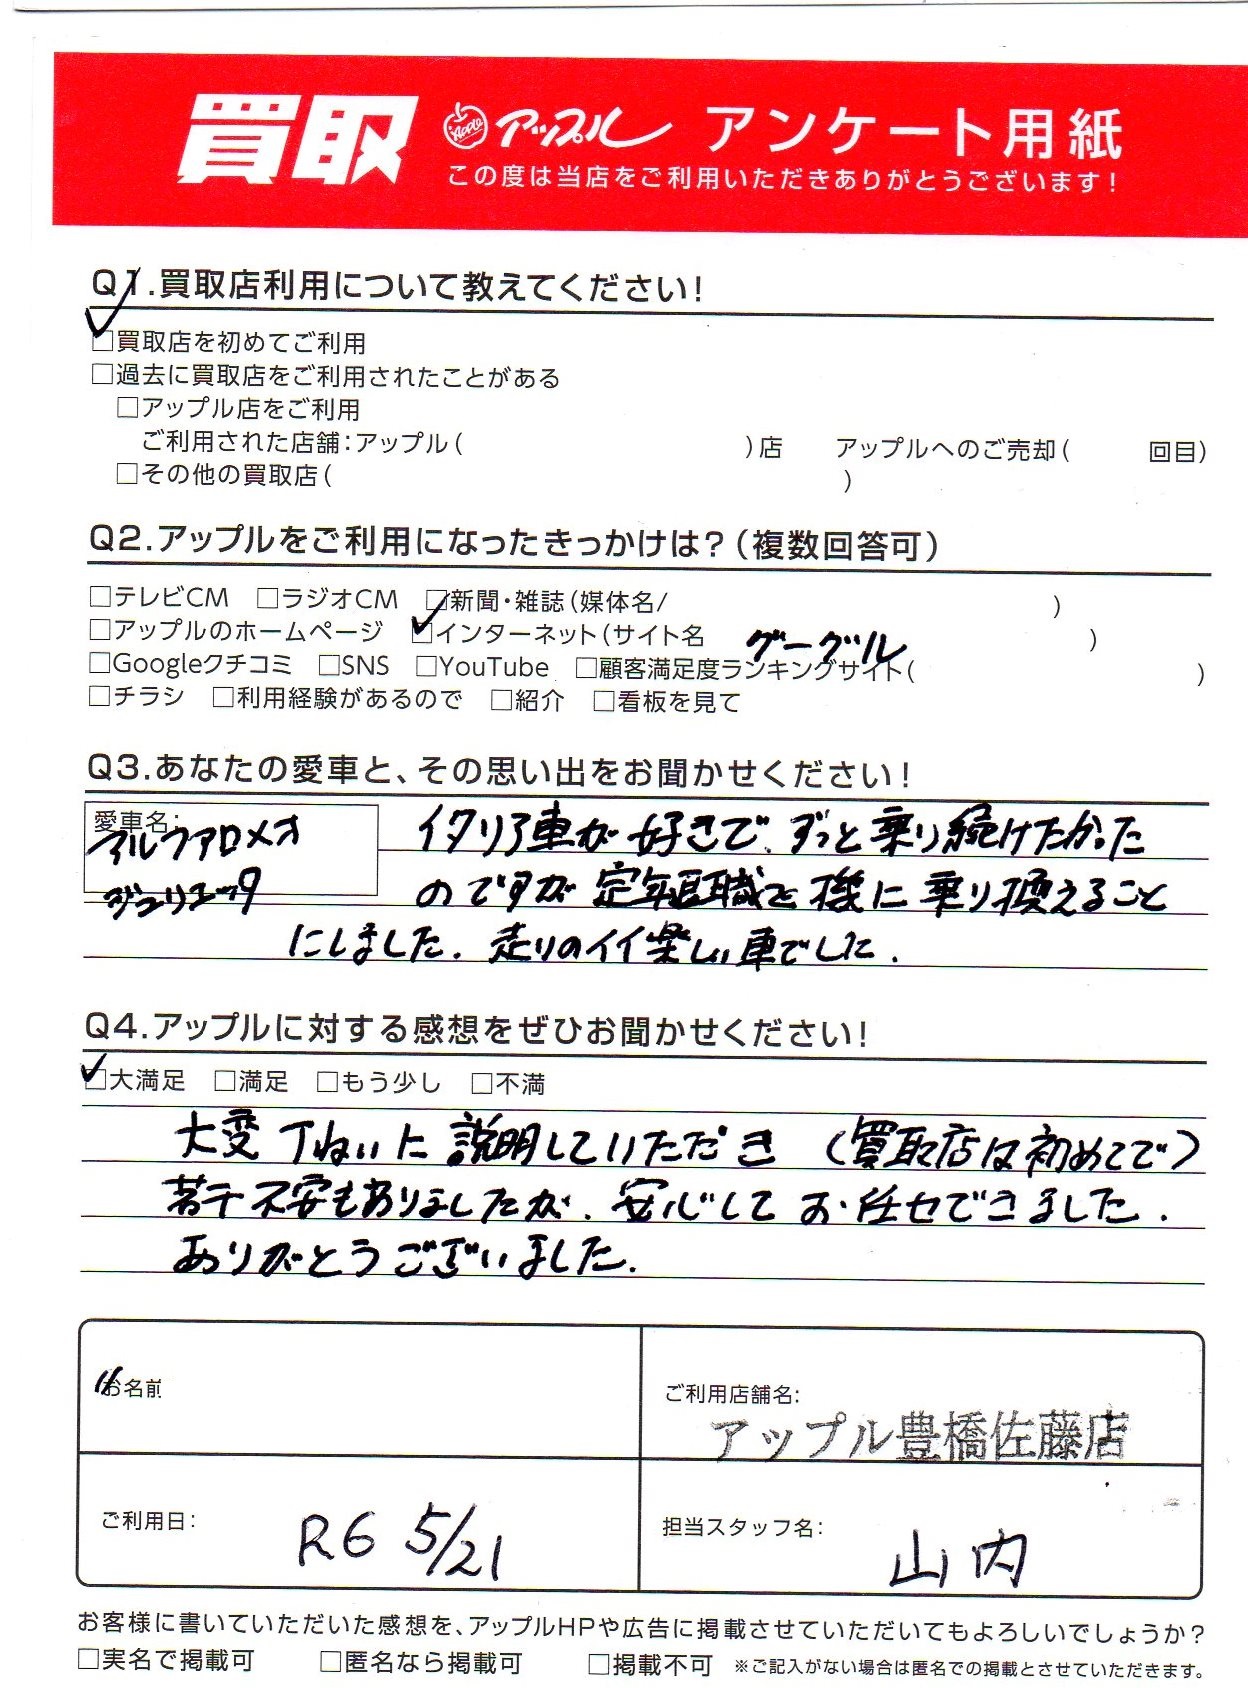 買取 Apple アップル アンケート用紙
この度は当店をご利用いただきありがとうございます!
Q1.買取店利用について教えてください!
□買取店を初めてご利用
□過去に買取店をご利用されたことがある
□アップル店をご利用
ご利用された店舗:アップル( )店 アップルへのご売却( 回目)
□その他の買取店( )
Q2.アップルをご利用になったきっかけは?(複数回答可)
□テレビCM □ラジオCM □新聞・雑誌(媒体名/ )
□アップルのホームページ □インターネット(サイト名 グーグル )
□Googleクチコミ □SNS □YouTube □顧客満足度ランキングサイト( )
□チラシ □利用経験があるので □紹介 □看板を見て
Q3.あなたの愛車と、その思い出をお聞かせください!
愛車名:
アルファロメオ
ジュリエッタ
イタリア車が好きで、ずっと乗り続けたかった
のですが定年退職を機に乗り換えること
にしました. 走りのイイ楽しい車でした.
Q4.アップルに対する感想をぜひお聞かせください!
□大満足 □満足 □もう少し □不満
大変丁ねいに説明していただき (買取店は初めてで)
若干不安もありましたが、安心してお任せできました.
ありがとうございました.
お名前
ご利用店舗名:
アップル豊橋佐藤店
ご利用日: R6 5/21
担当スタッフ名: 山内
お客様に書いていただいた感想を、アップルHPや広告に掲載させていただいてもよろしいでしょうか?
□実名で掲載可 □匿名なら掲載可 □掲載不可 ※ご記入がない場合は匿名での掲載とさせていただきます。